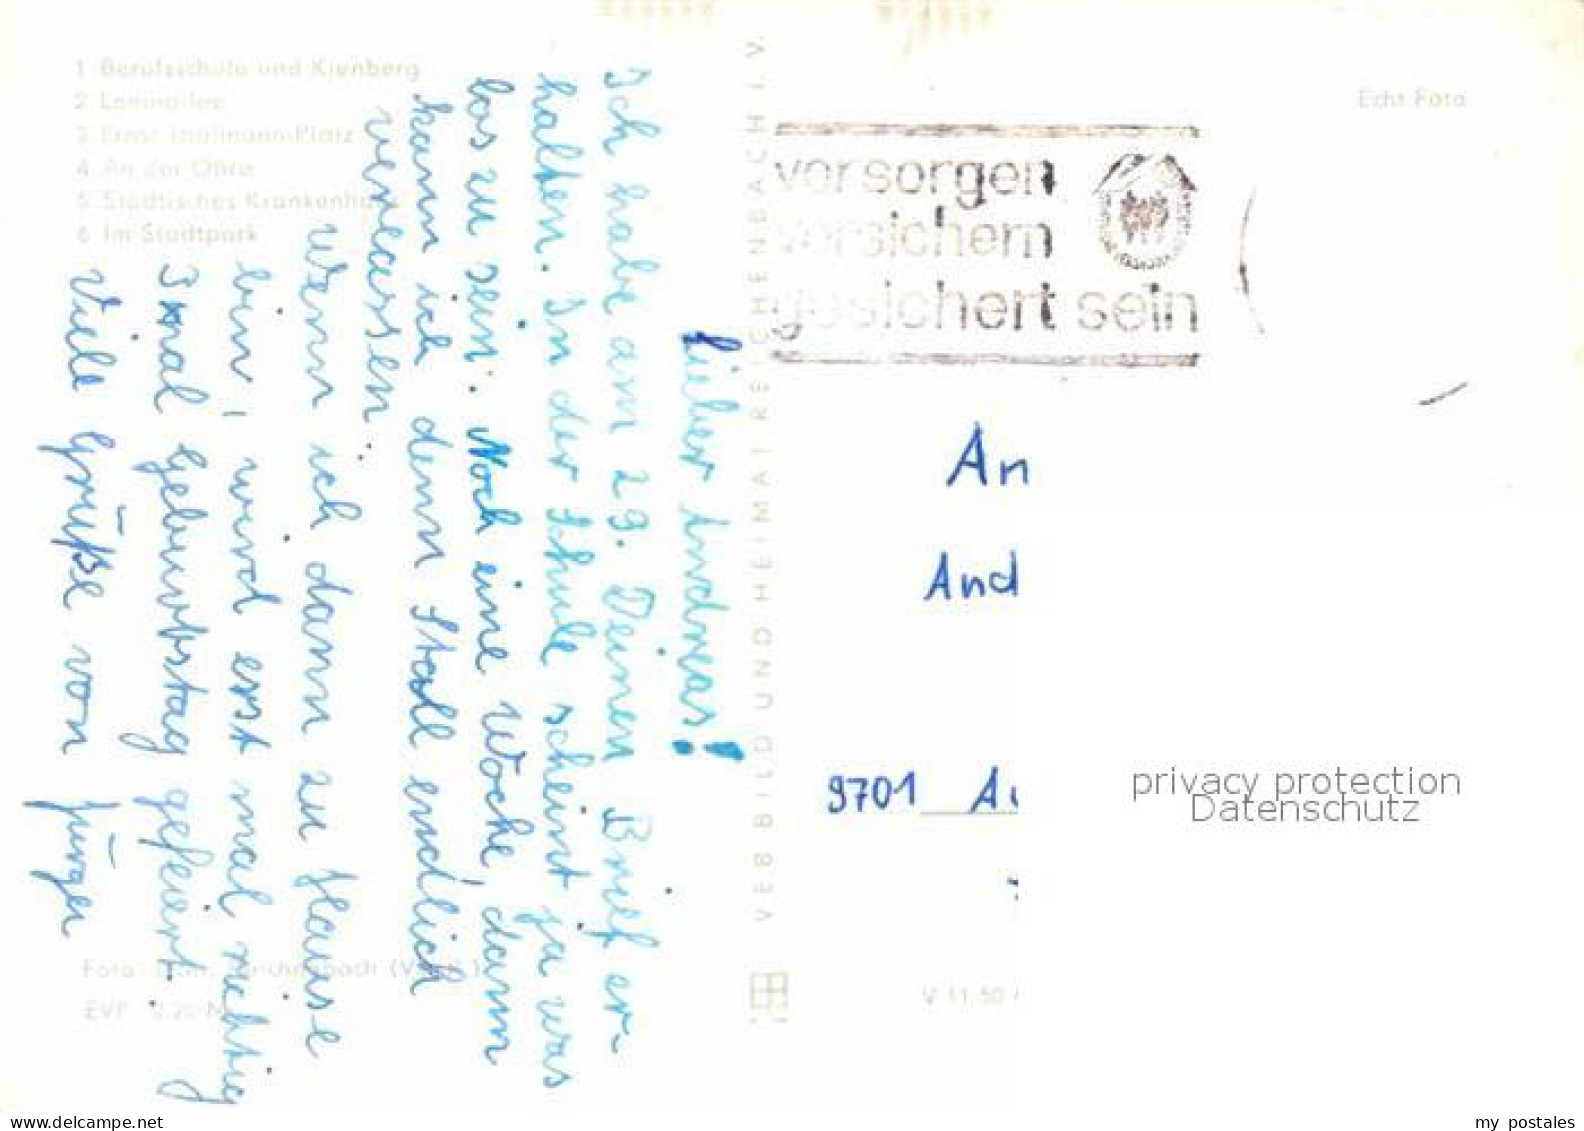 1 Berufsschule und Kienberg
2 Leninallee
3 Ernst-Thälmann-Platz
4 An der Ohre
5 Städtisches Krankenhaus
6 Im Stadtpark
Echt Foto
vorsorgen
versichern
gesichert sein
Lieber Andreas!
Ich habe am 29. Deinen Brief er-
halten. In der Schule scheint ja was
los zu sein. Noch eine Woche, dann
kann ich denn Stall endlich
verlassen.
Wenn ich dann zu Hause
bin, wird erst mal richtig
Geburtstag gefeiert.
Viele Grüße von Jürgen
VEB BILD UND HEIMAT REICHENBACH I. V.
An
And
9701 Au
privacy protection
Datenschutz
Foto: Reichenbach (Vogtl.)
EVP 0,20 M
V 11 50
my postales
www.delcampe.net